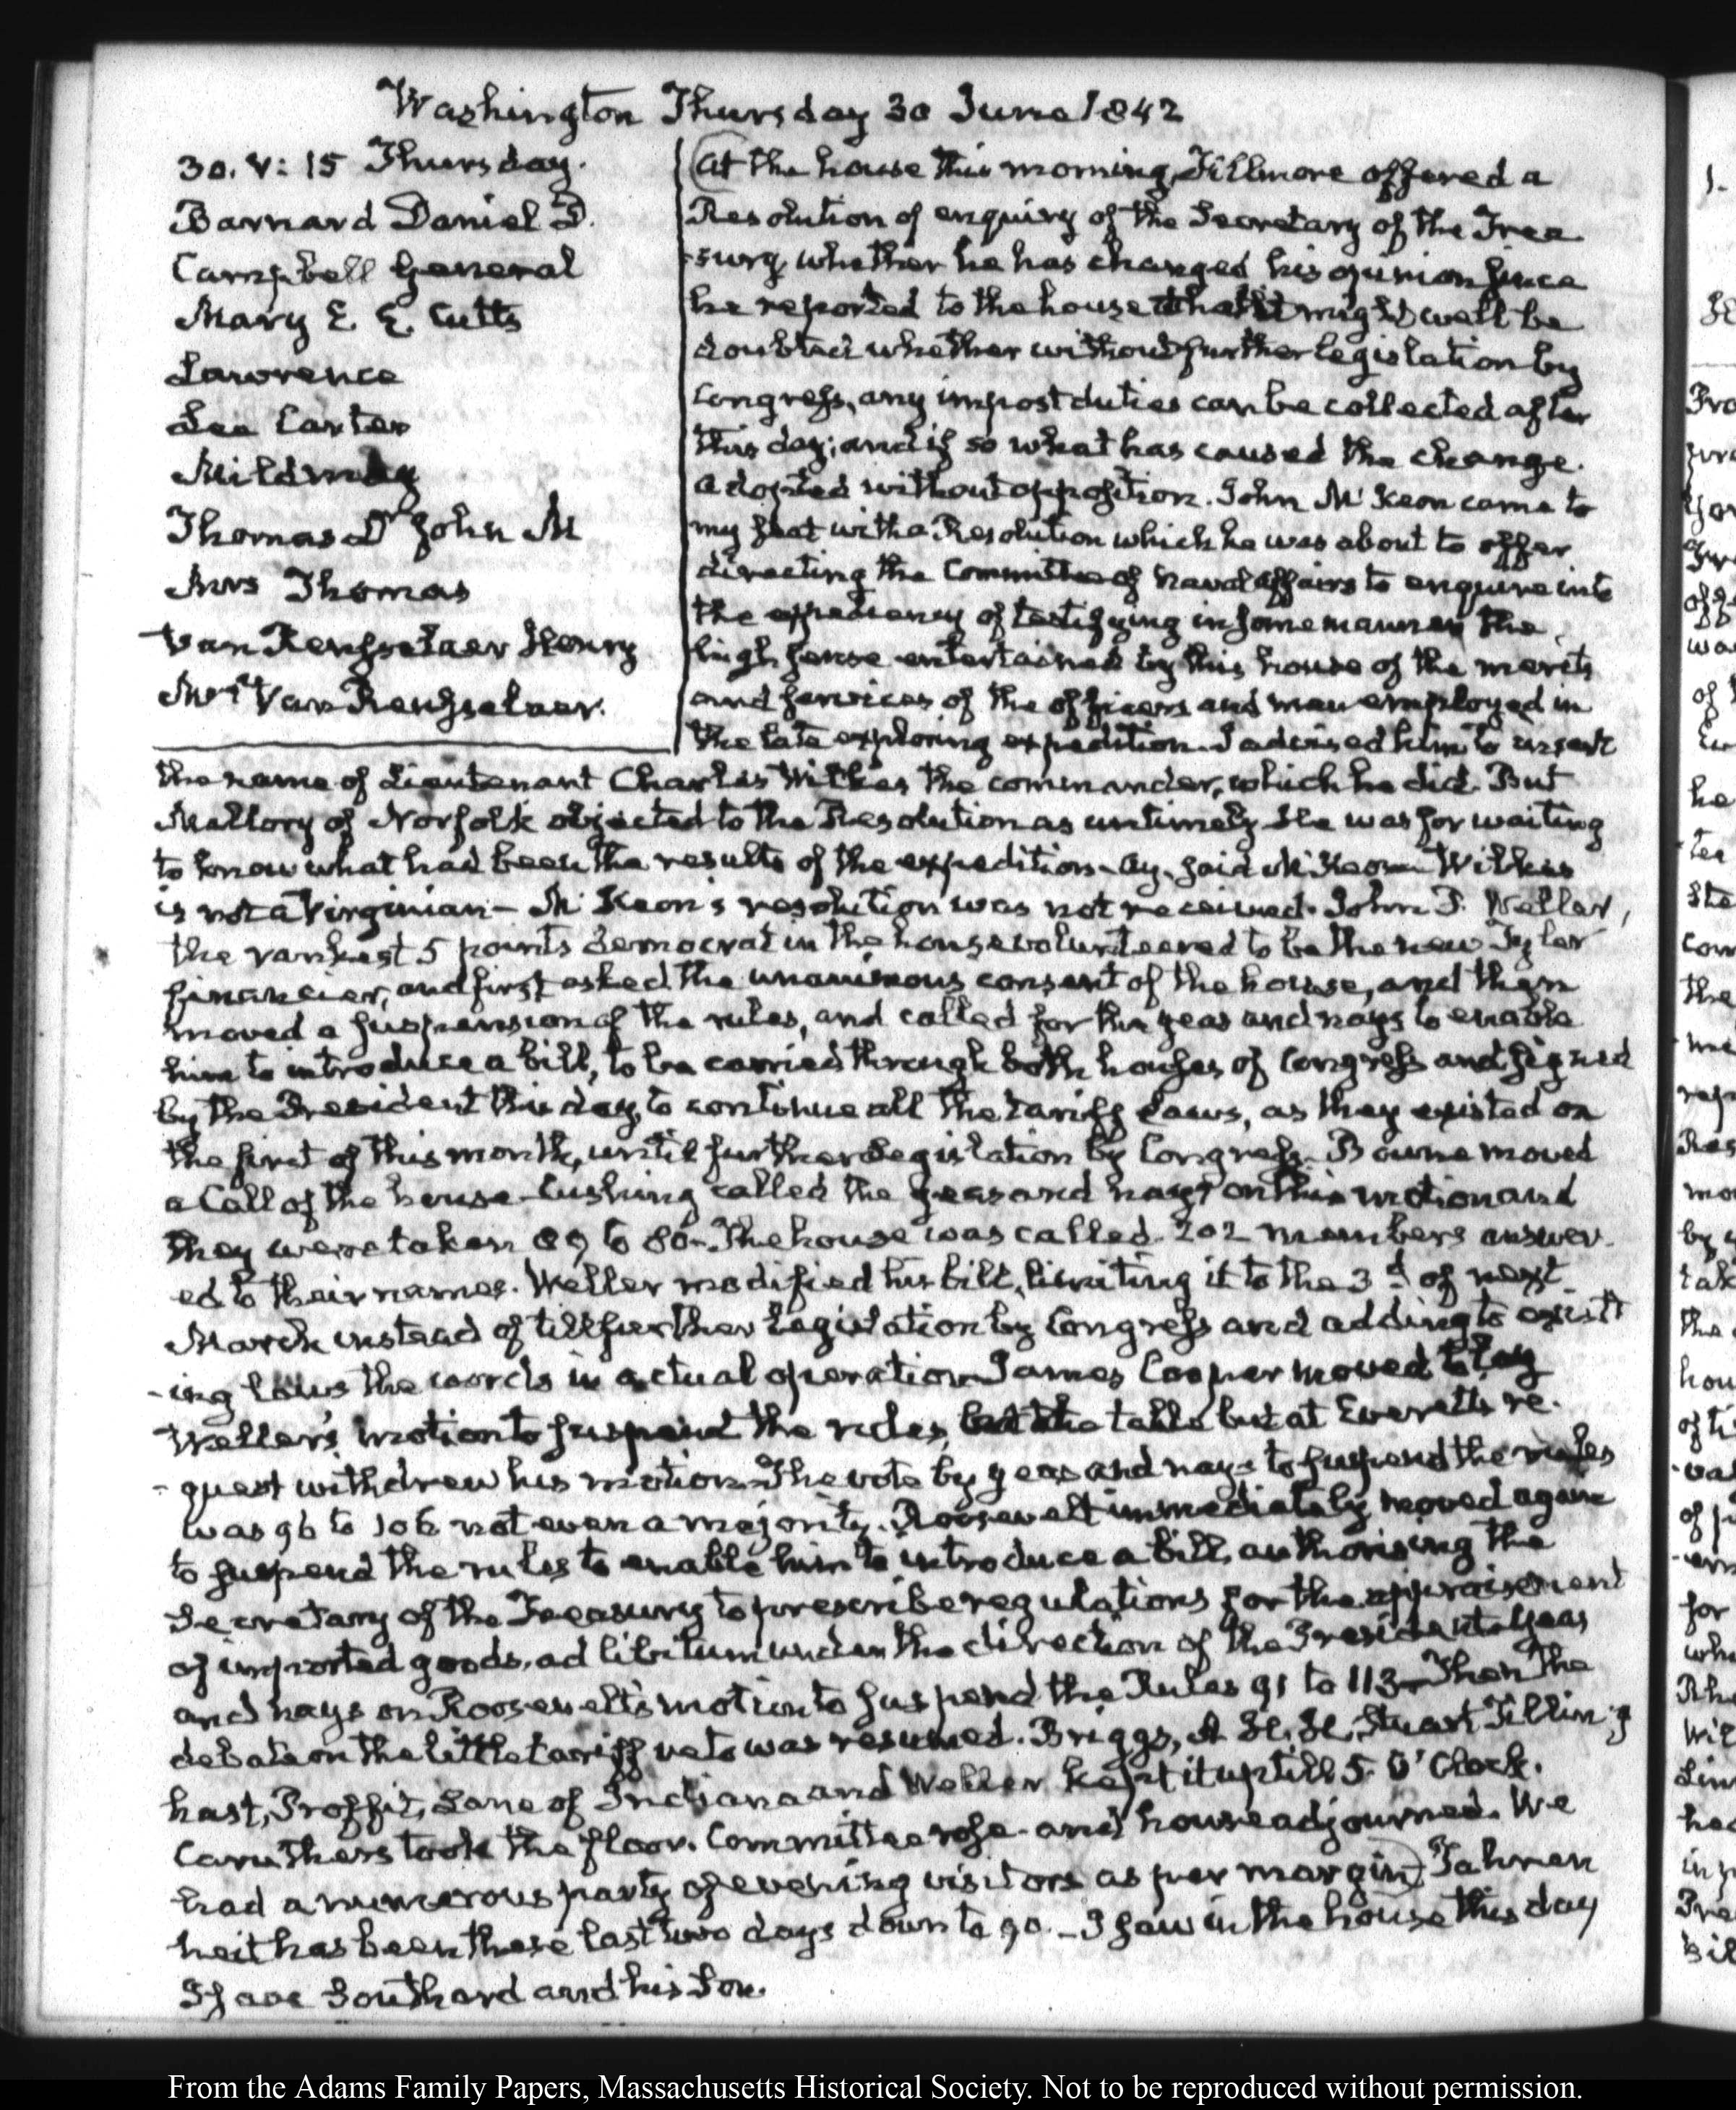 Washington Thursday 30 June 1842
30. V: 15 Thursday.
Barnard Daniel D.
Campbell General
Mary E. E. Cutts
Lawrence
Lee Carter
Mildmay
Thomas Dr John M
Mrs Thomas
Van Rensselaer Henry
Mrs Van Rensselaer.
At the house this morning, Fillmore offered a
Resolution of enquiry of the Secretary of the Trea
-sury, whether he has changed his opinion since
he reported to the house that it might well be
doubted whether without further legislation by
Congress, any impost duties can be collected after
this day; and if so what has caused the change.
adopted without opposition. John McKeon came to
my seat with a Resolution which he was about to offer
directing the Committee of Naval affairs to enquire into
the expediency of testifying in some manner the
high sense entertained by this house of the merits
and services of the officers and men employed in
the late exploring expedition. I advised him to insert
the name of Lieutenant Charles Wilkes the commander, which he did. But
Mallory of Norfolk objected to the Resolution as untimely. He was for waiting
to know what had been the results of the expedition - Ay, said McKeon - Wilkes
is not a Virginian - McKeon's resolution was not received. John B. Weller,
the rankest 5 points democrat in the house volunteered to be the new Tyler
financier, and first asked the unanimous consent of the house, and then
moved a suspension of the rules, and called for the yeas and nays to enable
him to introduce a bill, to be carried through both houses of Congress and signed
by the President this day, to continue all the tariff Laws, as they existed on
the first of this month, until further Legislation by Congress. Bowne moved
a Call of the house - Cushing called the yeas and nays on this motion and
they were taken 89 to 80. The house was called. 202 members answer-
ed to their names. Weller modified his bill, limiting it to the 3d of next
March instead of till further Legislation by Congress and adding to exist
-ing laws the words in actual operation. James Cooper moved to lay
Weller's motion to suspend the rules, on the table but at Everett's re-
-quest withdrew his motion. The vote by yeas and nays to suspend the rules
was 96 to 106 not even a majority. Roosevelt immediately moved again
to suspend the rules to enable him to introduce a bill, authorising the
Secretary of the Treasury to prescribe regulations for the appraisement
of imported goods, ad libitum under the direction of the President. Yeas
and nays on Roosevelt's motion to suspend the Rules 91 to 113 - Then the
debate on the little tariff veto was resumed. Briggs, A. H. H. Stuart, Tilling
hast, Proffit, Lane of Indiana and Weller kept it up till 5 O'Clock.
Caruthers took the floor. Committee rose - and house adjourned. We
had a numerous party of evening visitors as per margin. Fahren
heit has been these last two days down to 90. - I saw in the house this day
Isaac Southard and his Son.
From the Adams Family Papers, Massachusetts Historical Society. Not to be reproduced without permission.